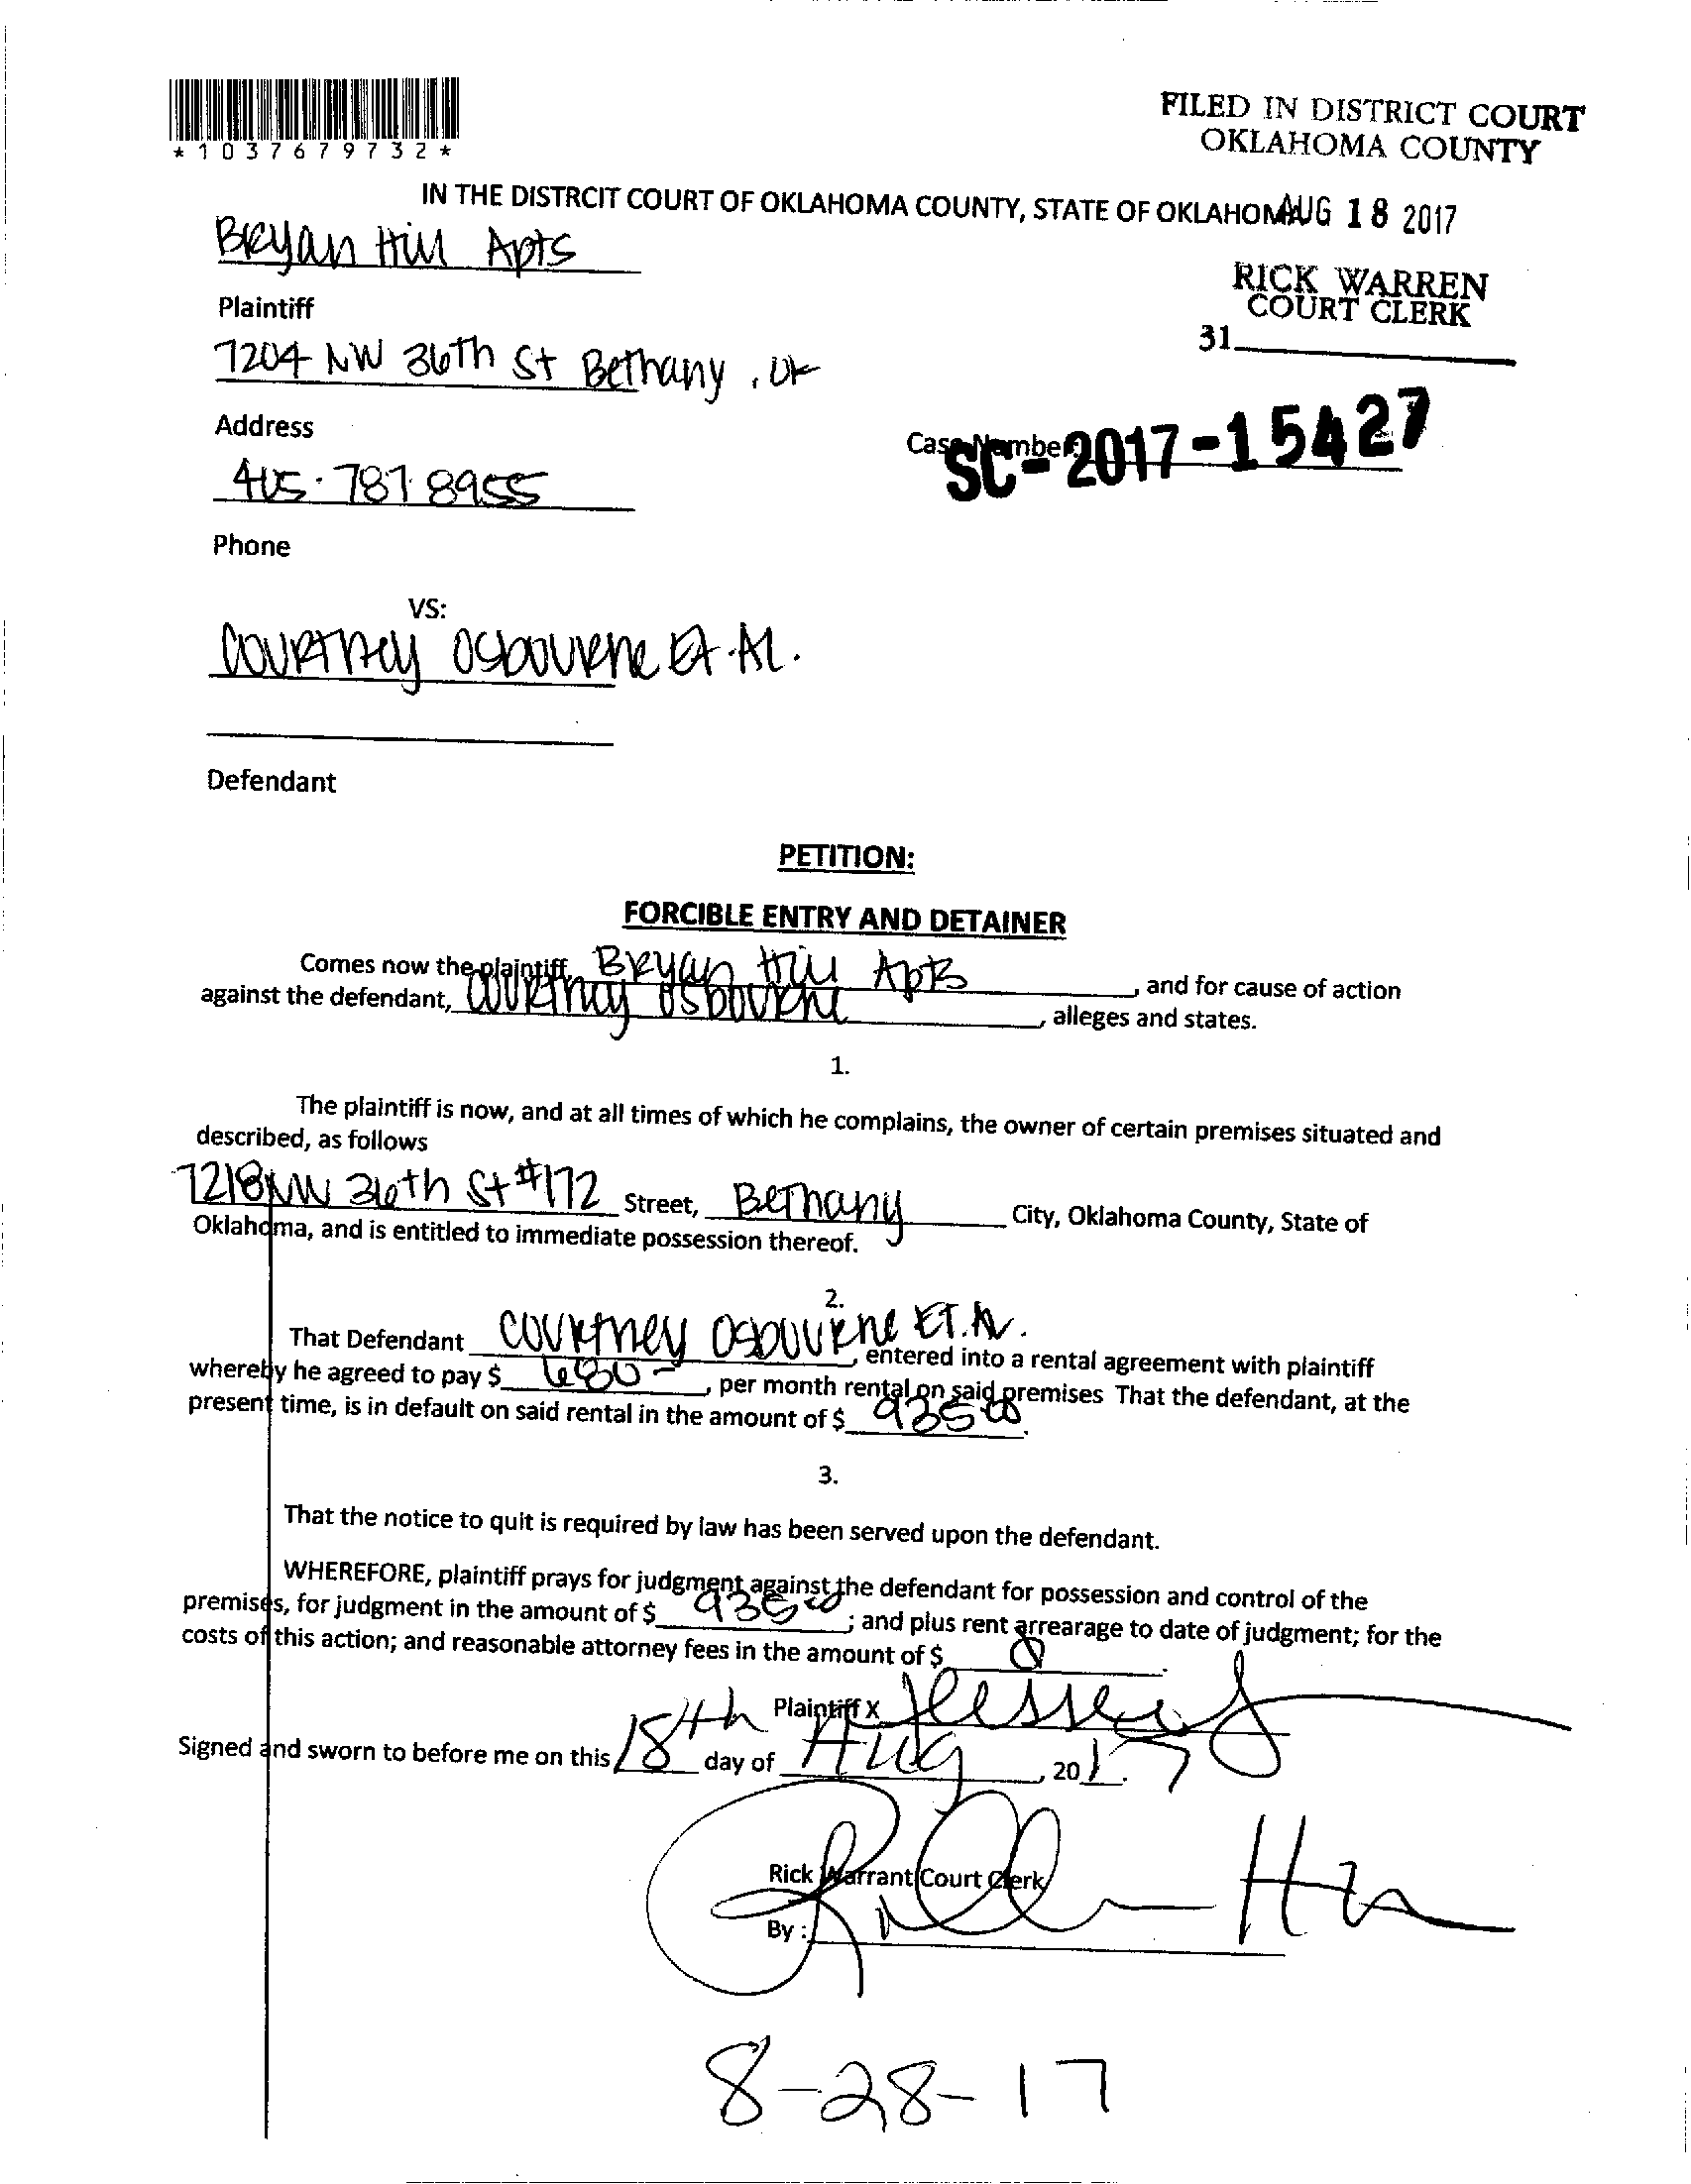 *1037679732*
FILED IN DISTRICT COURT
OKLAHOMA COUNTY
IN THE DISTRCIT COURT OF OKLAHOMA COUNTY, STATE OF OKLAHOMA
AUG 18 2017
Bryan Hill Apts
RICK WARREN
COURT CLERK
Plaintiff
31
7204 NW 36th St Bethany, OK
Address
Case Number
SC-2017-15427
405.787.8955
Phone
VS:
Courtney Osbourne Et.Al.
Defendant
PETITION:
FORCIBLE ENTRY AND DETAINER
Comes now the plaintiff, Bryan Hill Apts, and for cause of action
against the defendant, Courtney Osbourne, alleges and states.
1.
The plaintiff is now, and at all times of which he complains, the owner of certain premises situated and
described, as follows
7218 NW 36th St #172 Street, Bethany City, Oklahoma County, State of
Oklahoma, and is entitled to immediate possession thereof.
2.
That Defendant Courtney Osbourne ET.Al., entered into a rental agreement with plaintiff
whereby he agreed to pay $ 680-, per month rental on said premises That the defendant, at the
present time, is in default on said rental in the amount of $ 935.00.
3.
That the notice to quit is required by law has been served upon the defendant.
WHEREFORE, plaintiff prays for judgment against the defendant for possession and control of the
premises, for judgment in the amount of $ 935.00; and plus rent arrearage to date of judgment; for the
costs of this action; and reasonable attorney fees in the amount of $
Plaintiff X
Signed and sworn to before me on this 18th day of Aug, 2017
Rick Warrant Court Clerk
By :
8-28-17